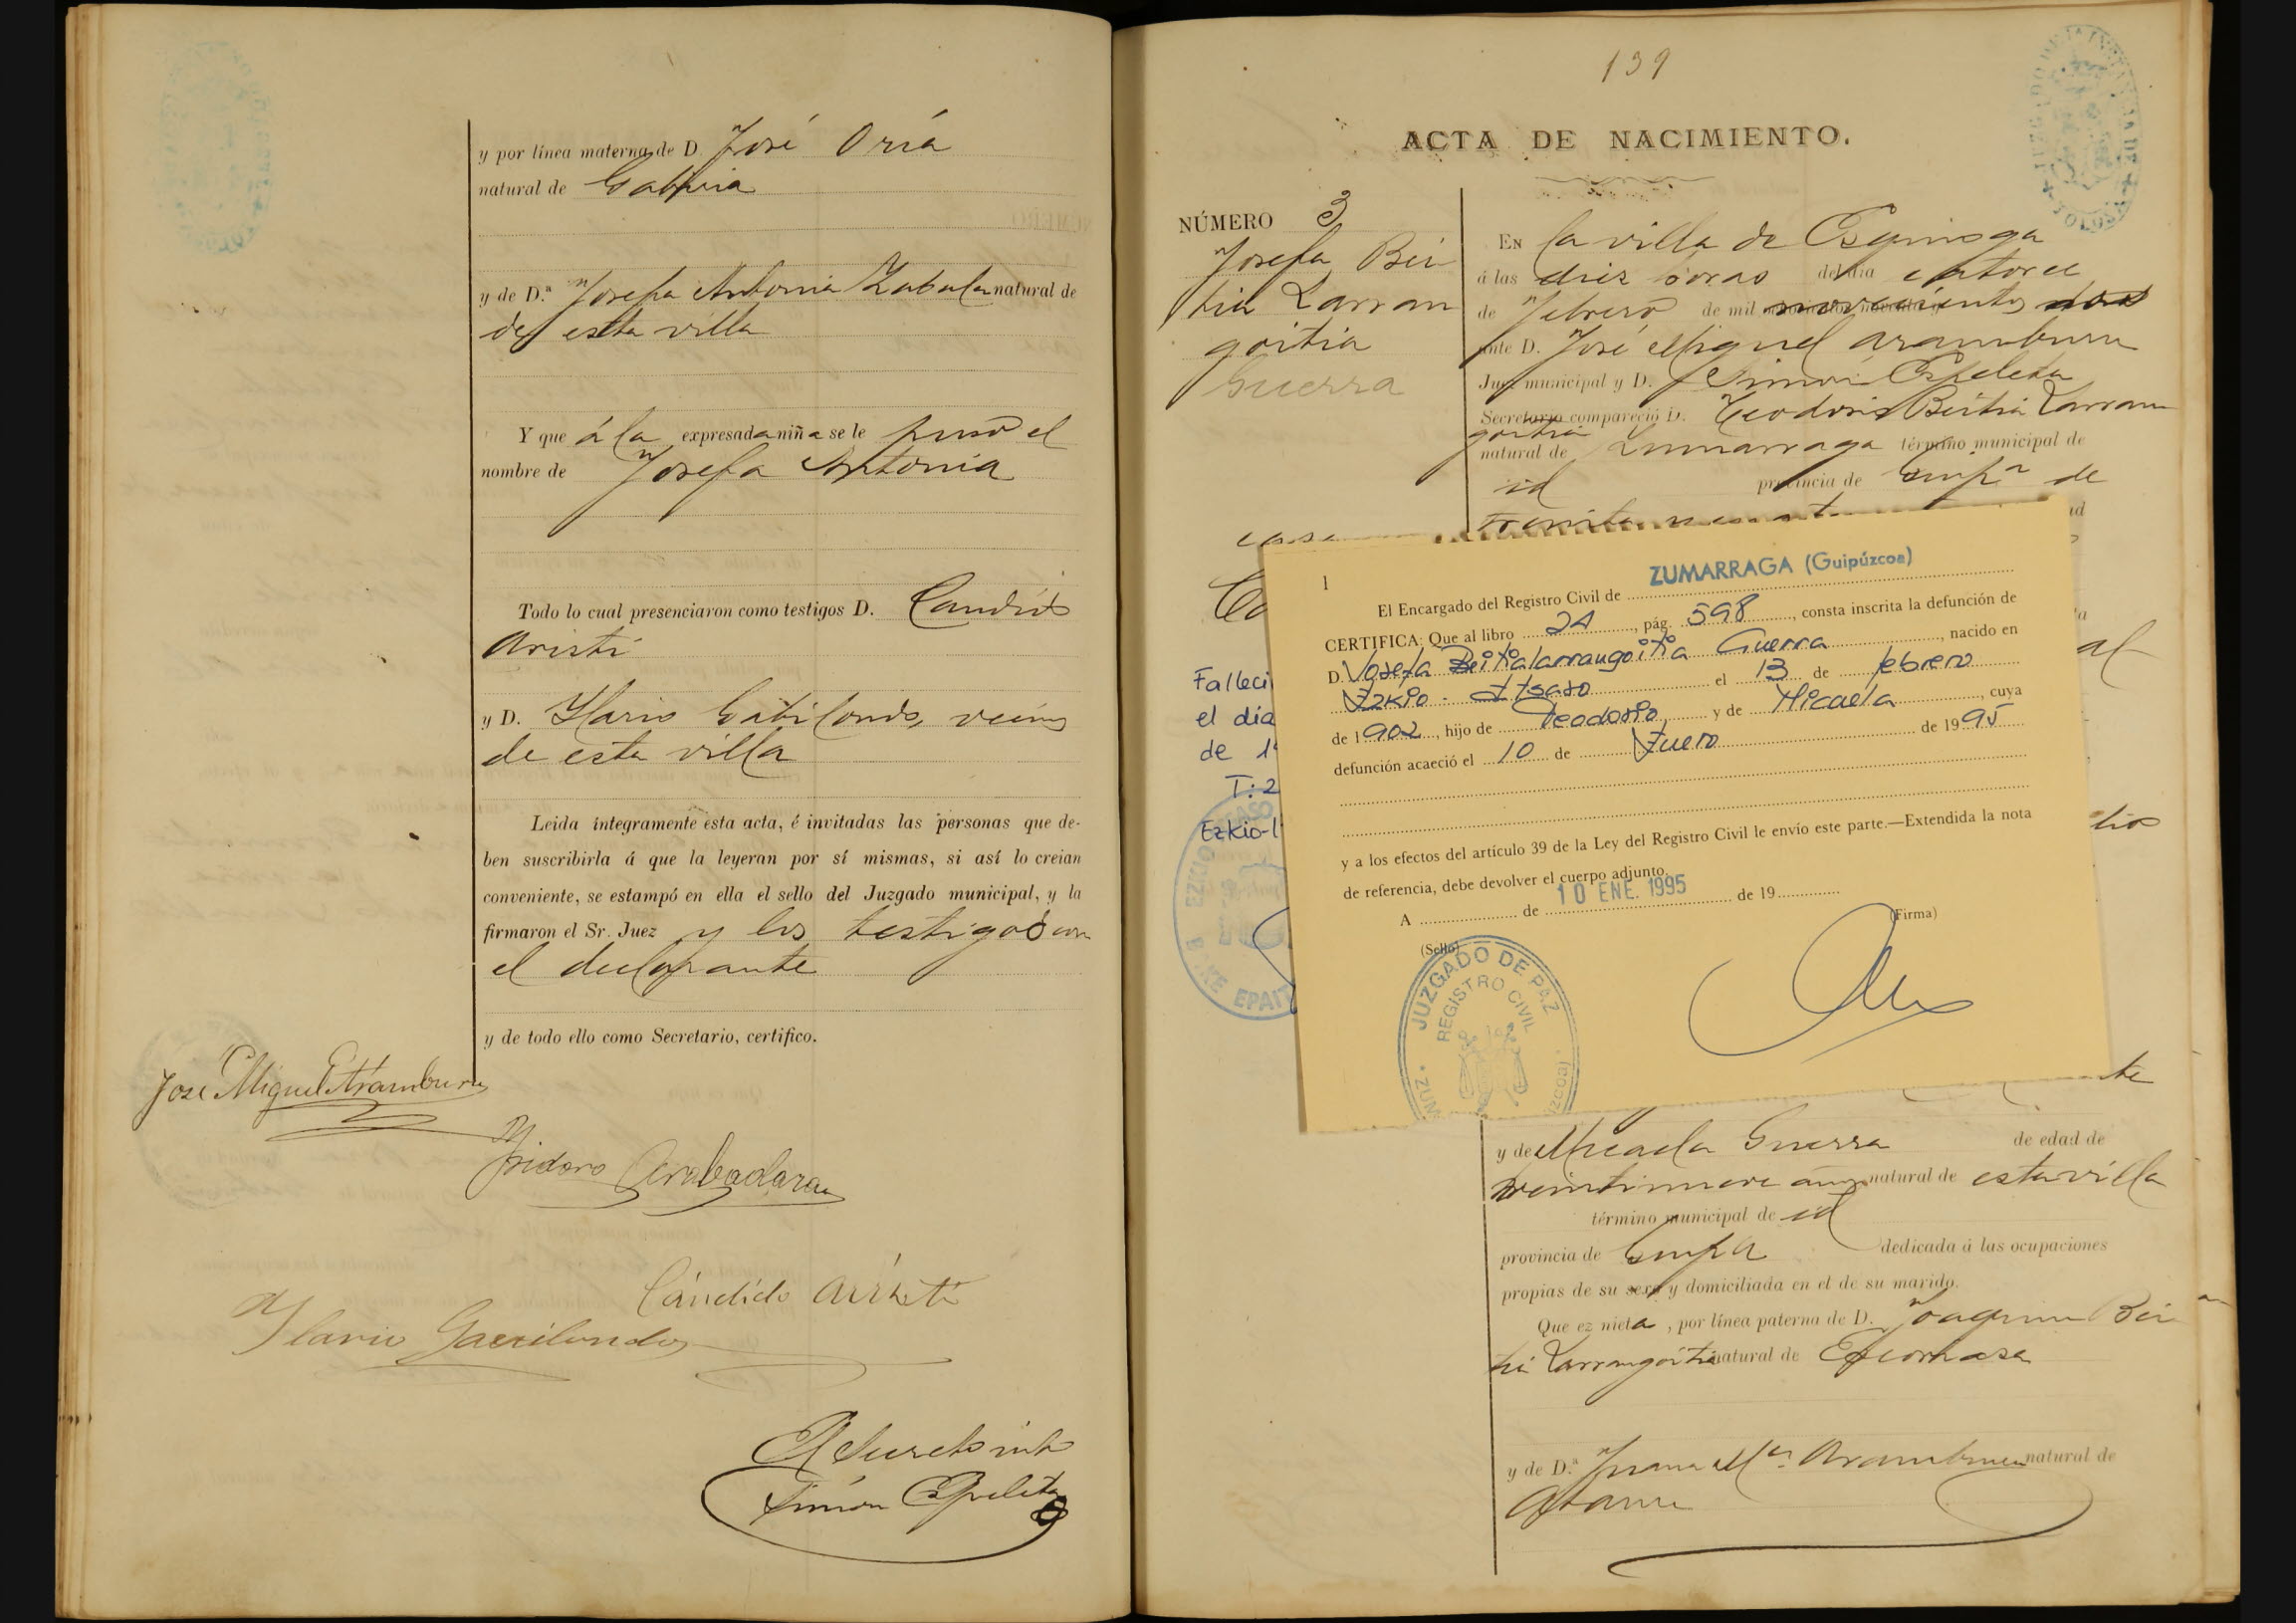 y por línea materna de D. José Oria
natural de Gabiria
y de D.ª Josefa Antonia Zabala natural de
de esta villa
Y que á la expresada niña se le puso el
nombre de Josefa Antonia
Todo lo cual presenciaron como testigos D. Candido
Aristi
y D. Ilario Gabilondo, vecinos
de esta villa
Leida íntegramente esta acta, é invitadas las personas que de-
ben suscribirla á que la leyeran por sí mismas, si así lo creian
conveniente, se estampó en ella el sello del Juzgado municipal, y la
firmaron el Sr. Juez y los testigos con
el declarante
y de todo ello como Secretario, certifico.
José Miguel Aramburu
Ysidoro
Cándido Aristi
Ylario Gavilondo
El Secretario
Simón Espeleta
139
ACTA DE NACIMIENTO.
NÚMERO 3
Josefa Bei
tia Larran
goitia
Guerra
EN la villa de Ezquioga
á las diez horas del dia catorce
de Febrero de mil novecientos dos
ante D. José Miguel Aramburu
Juez municipal y D. Simón Espeleta
Secretario compareció D. Teodosio Beitia Larran
goitia
natural de Zumarraga término municipal de
id provincia de Guipª de
casa
Co
Falleci
el día
de 1
T: 2
Ezkio-I
1
ZUMARRAGA (Guipúzcoa)
El Encargado del Registro Civil de
CERTIFICA: Que al libro 24, pág. 598, consta inscrita la defunción de
D. Josefa Beitialarrangoitia Guerra, nacido en
Ezkio - Itsaso el 13 de febrero
de 1902, hijo de Teodosio y de Micaela, cuya
defunción acaeció el 10 de Enero de 1995
y a los efectos del artículo 39 de la Ley del Registro Civil le envío este parte.—Extendida la nota
de referencia, debe devolver el cuerpo adjunto.
A de 10 ENE. 1995 de 19
(Sello) (Firma)
JUZGADO DE PAZ
REGISTRO CIVIL
y de Micaela Guerra de edad de
veintinueve años natural de esta villa
término municipal de id
provincia de Guipª dedicada á las ocupaciones
propias de su sexo y domiciliada en el de su marido.
Que ez nieta, por línea paterna de D. Joaquin Bei
tia Larrangoitia natural de
y de D.ª Juana Mª Aramburu natural de
Ataun